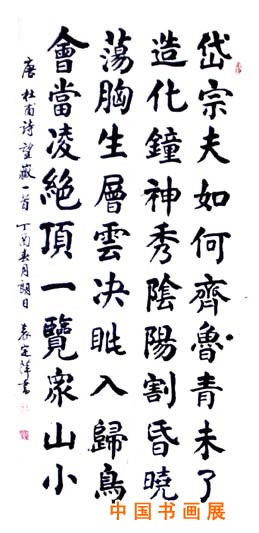 岱宗夫如何齊魯青未了
造化鐘神秀陰陽割昏曉
蕩胸生層雲决眦入歸鳥
會當凌絕頂一覽衆山小
唐杜甫詩望嶽一首丁酉春月朔日 袁定萍書
中国书画展